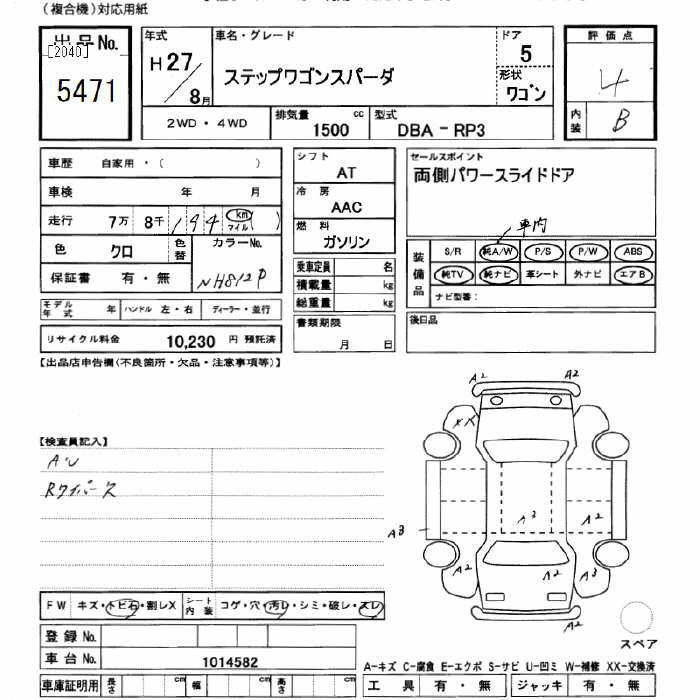 (複合機)対応用紙
出品No.
[2040]
5471
年式
H27/8月
車名・グレード
ステップワゴンスパーダ
ドア
5
形状
ワゴン
評価点
4
内装
B
2WD・4WD
排気量 cc
1500
型式
DBA-RP3
車歴 自家用・( )
車検 年 月
走行 7万 8千 194 km マイル ( )
色 クロ
色替
カラーNo.
NH812P
保証書 有・無
モデル年式 年 ハンドル 左・右 ディーラー・並行
リサイクル料金 10,230 円 預託済
シフト
AT
冷房
AAC
燃料
ガソリン
乗車定員 名
積載量 kg
総重量 kg
書類期限
月 日
セールスポイント
両側パワースライドドア
車内
装備品
S/R 純A/W P/S P/W ABS
純TV 純ナビ 革シート 外ナビ エアB
ナビ型番:
後日品
【出品店申告欄(不良箇所・欠品・注意事項等)】
【検査員記入】
AU
Rワイパース
A2 A2
XX
A3
A2
A3
A2 A2 A3
A2
FW キズ・トビ石・割レX
シート内装 コゲ・穴・汚レ・シミ・破レ・スレ
登録No.
車台No. 1014582
車庫証明用 長さ cm 幅 cm 高さ cm
スペア
A-キズ C-腐食 E-エクボ S-サビ U-凹ミ W-補修 XX-交換済
工具 有・無 ジャッキ 有・無